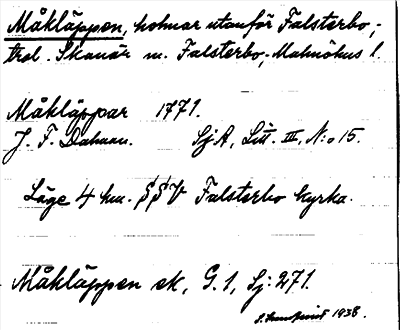 Måkläppen, holmar utanför Falsterbo,
trol. Skanör m. Falsterbo, Malmöhus l.
Måkläppar 1771.
J. F. Dahman. SjA, Litt. III, N:o 15.
Läge 4 km. SSV Falsterbo kyrka.
Måkläppen ek, G. 1, Sj. 271.
1938.